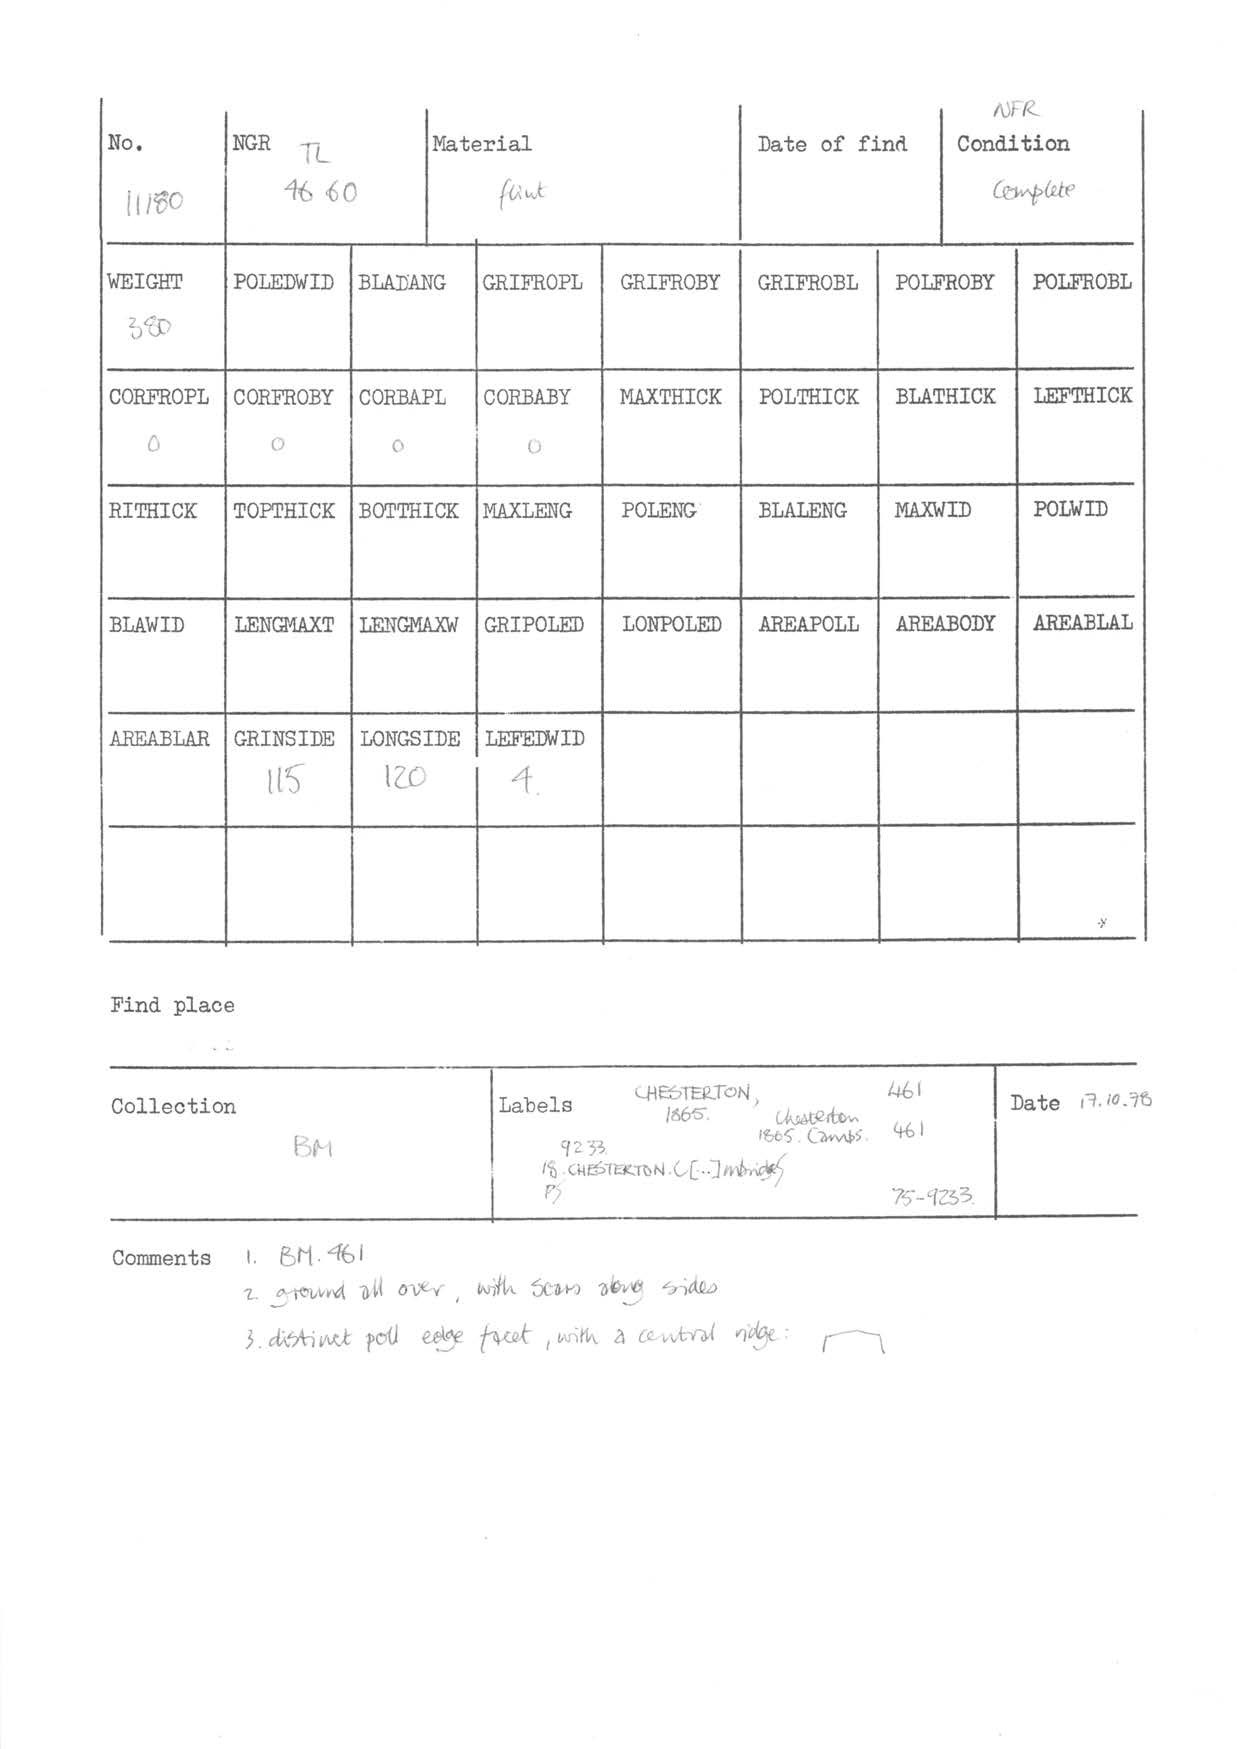 NFR
No. NGR TL Material Date of find Condition
11/80 46 60 flint Complete
WEIGHT POLEDWID BLADANG GRIFROPL GRIFROBY GRIFROBL POLFROBY POLFROBL
380
CORFROPL CORFROBY CORBAPL CORBABY MAXTHICK POLTHICK BLATHICK LEFTHICK
0 0 0 0
RITHICK TOPTHICK BOTTHICK MAXLENG POLENG BLALENG MAXWID POLWID
BLAWID LENGMAXT LENGMAXW GRIPOLED LONPOLED AREAPOLL AREABODY AREABLAL
AREABLAR GRINSIDE LONGSIDE LEFEDWID
115 120 4.
*
Find place
Collection BM
Labels CHESTERTON, 461
1865. Chesterton
1865. Cambs. 461
9233
18. CHESTERTON. C[...]mbridge
PS 75-9233.
Date 17.10.78
Comments 1. BM. 461
2. ground all over, with scars along sides
3. distinct poll edge facet, with a central ridge: